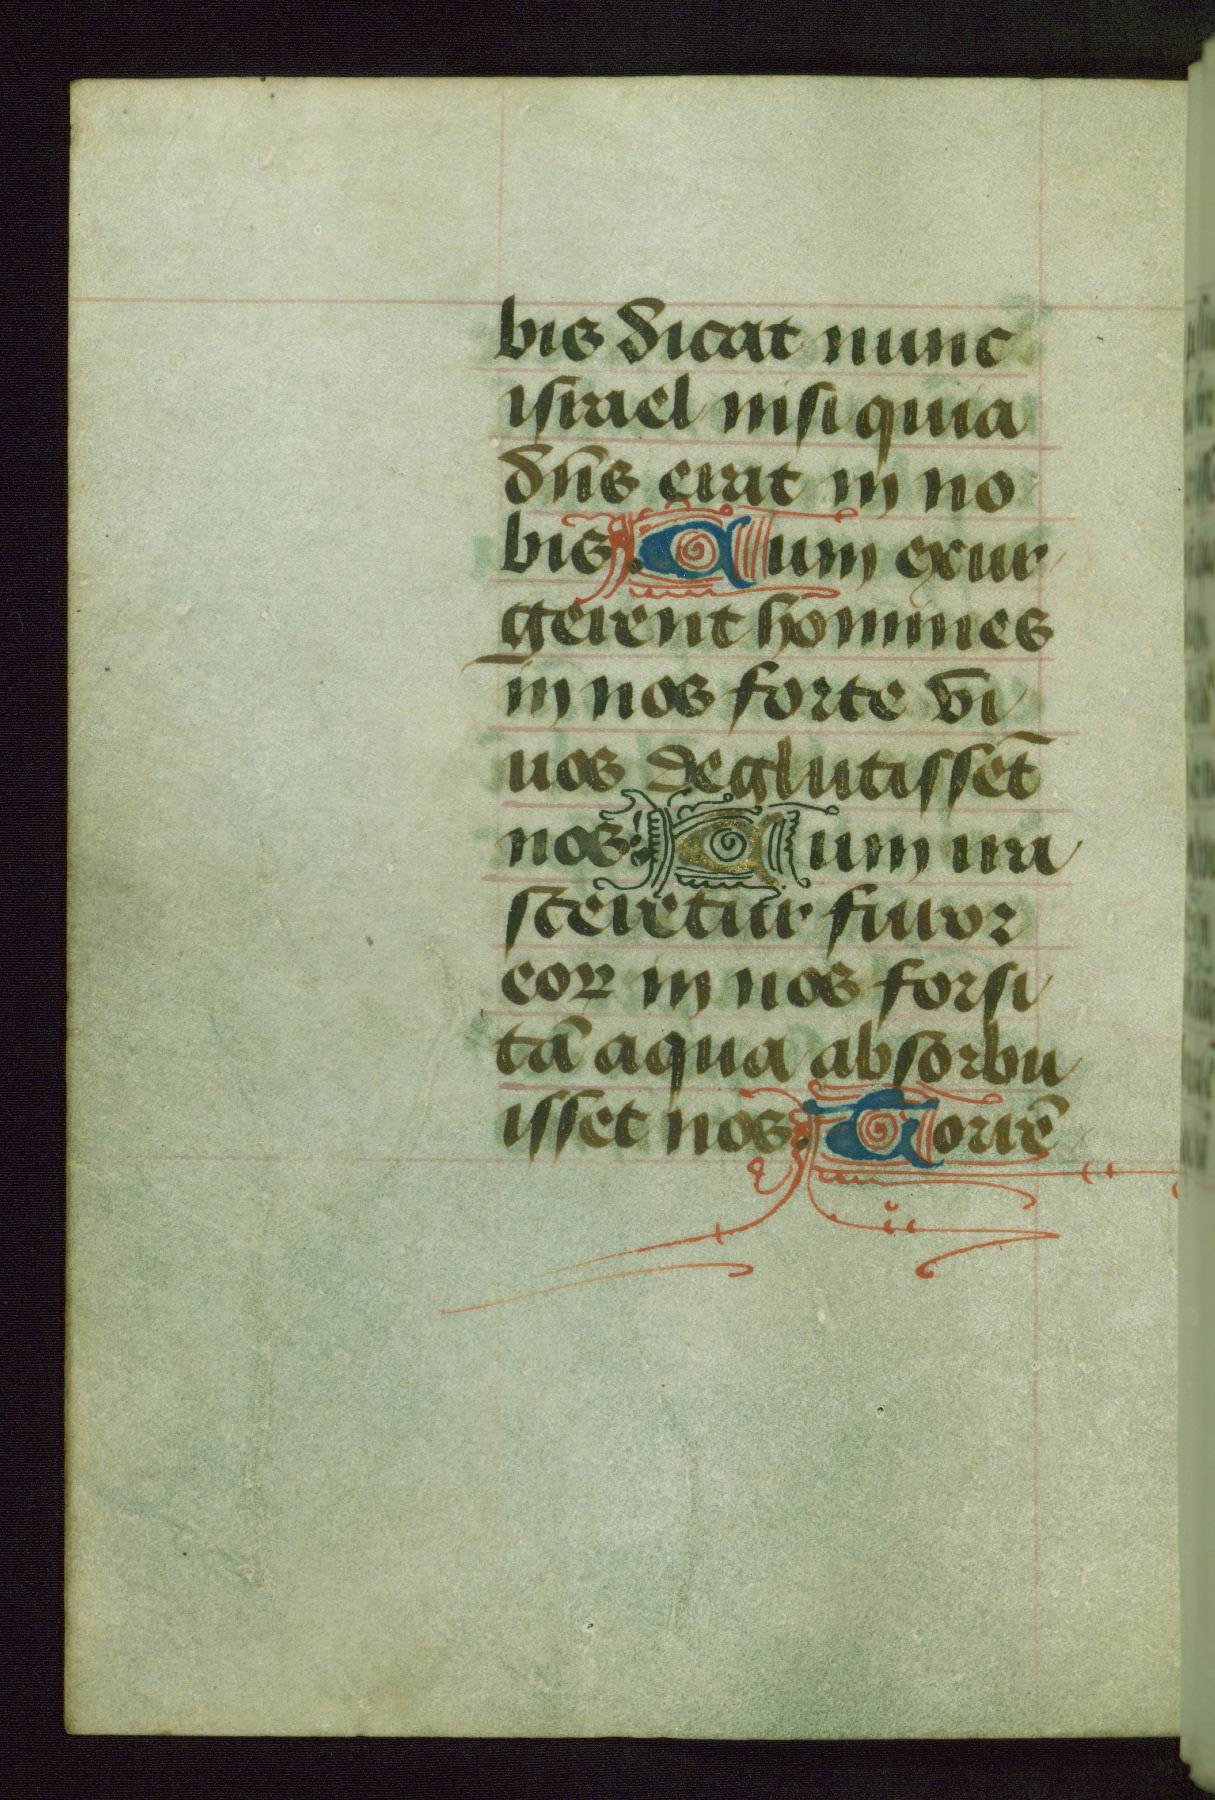 bis dicat nunc
israel nisi quia
dn̄s erat in no
bis. Cum exur
gerent hōmines
in nos forte vi
uos deglutissēt
nos: Cum ira
sceretur furor
eoꝝ in nos forsi
tā aqua absorbu
isset nos. Torrē